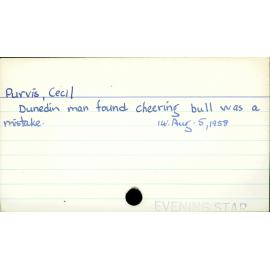 Purvis, Cecil
Dunedin man found cheering bull was a
mistake. 14. Aug. 5, 1958
EVENING STAR